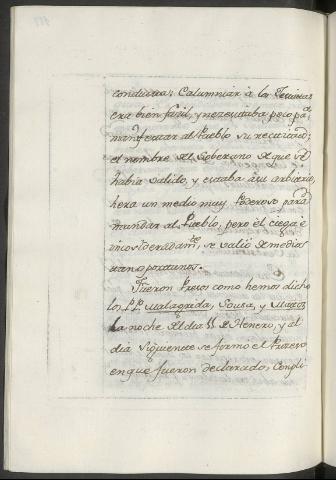 conductas; Calumniar à los Jesuitas
era bien facil, y nezesitaba poco pa.ª
manifestar al Pueblo su rectitud;
el nombre del Soberano de que se
havia valido, y estaba à su arbitrio,
hera un medio muy Poderoso para
mundar al Pueblo, pero èl ciega è
inconsideradam.te se valio de medios
Fueron Presos como hemos dicho
los PP. Malagrida, Sousa, y Matos
la noche del dia 11 de Henero, y al
dia siguiente se formó el Proceso
en que fueron declarados, Compli